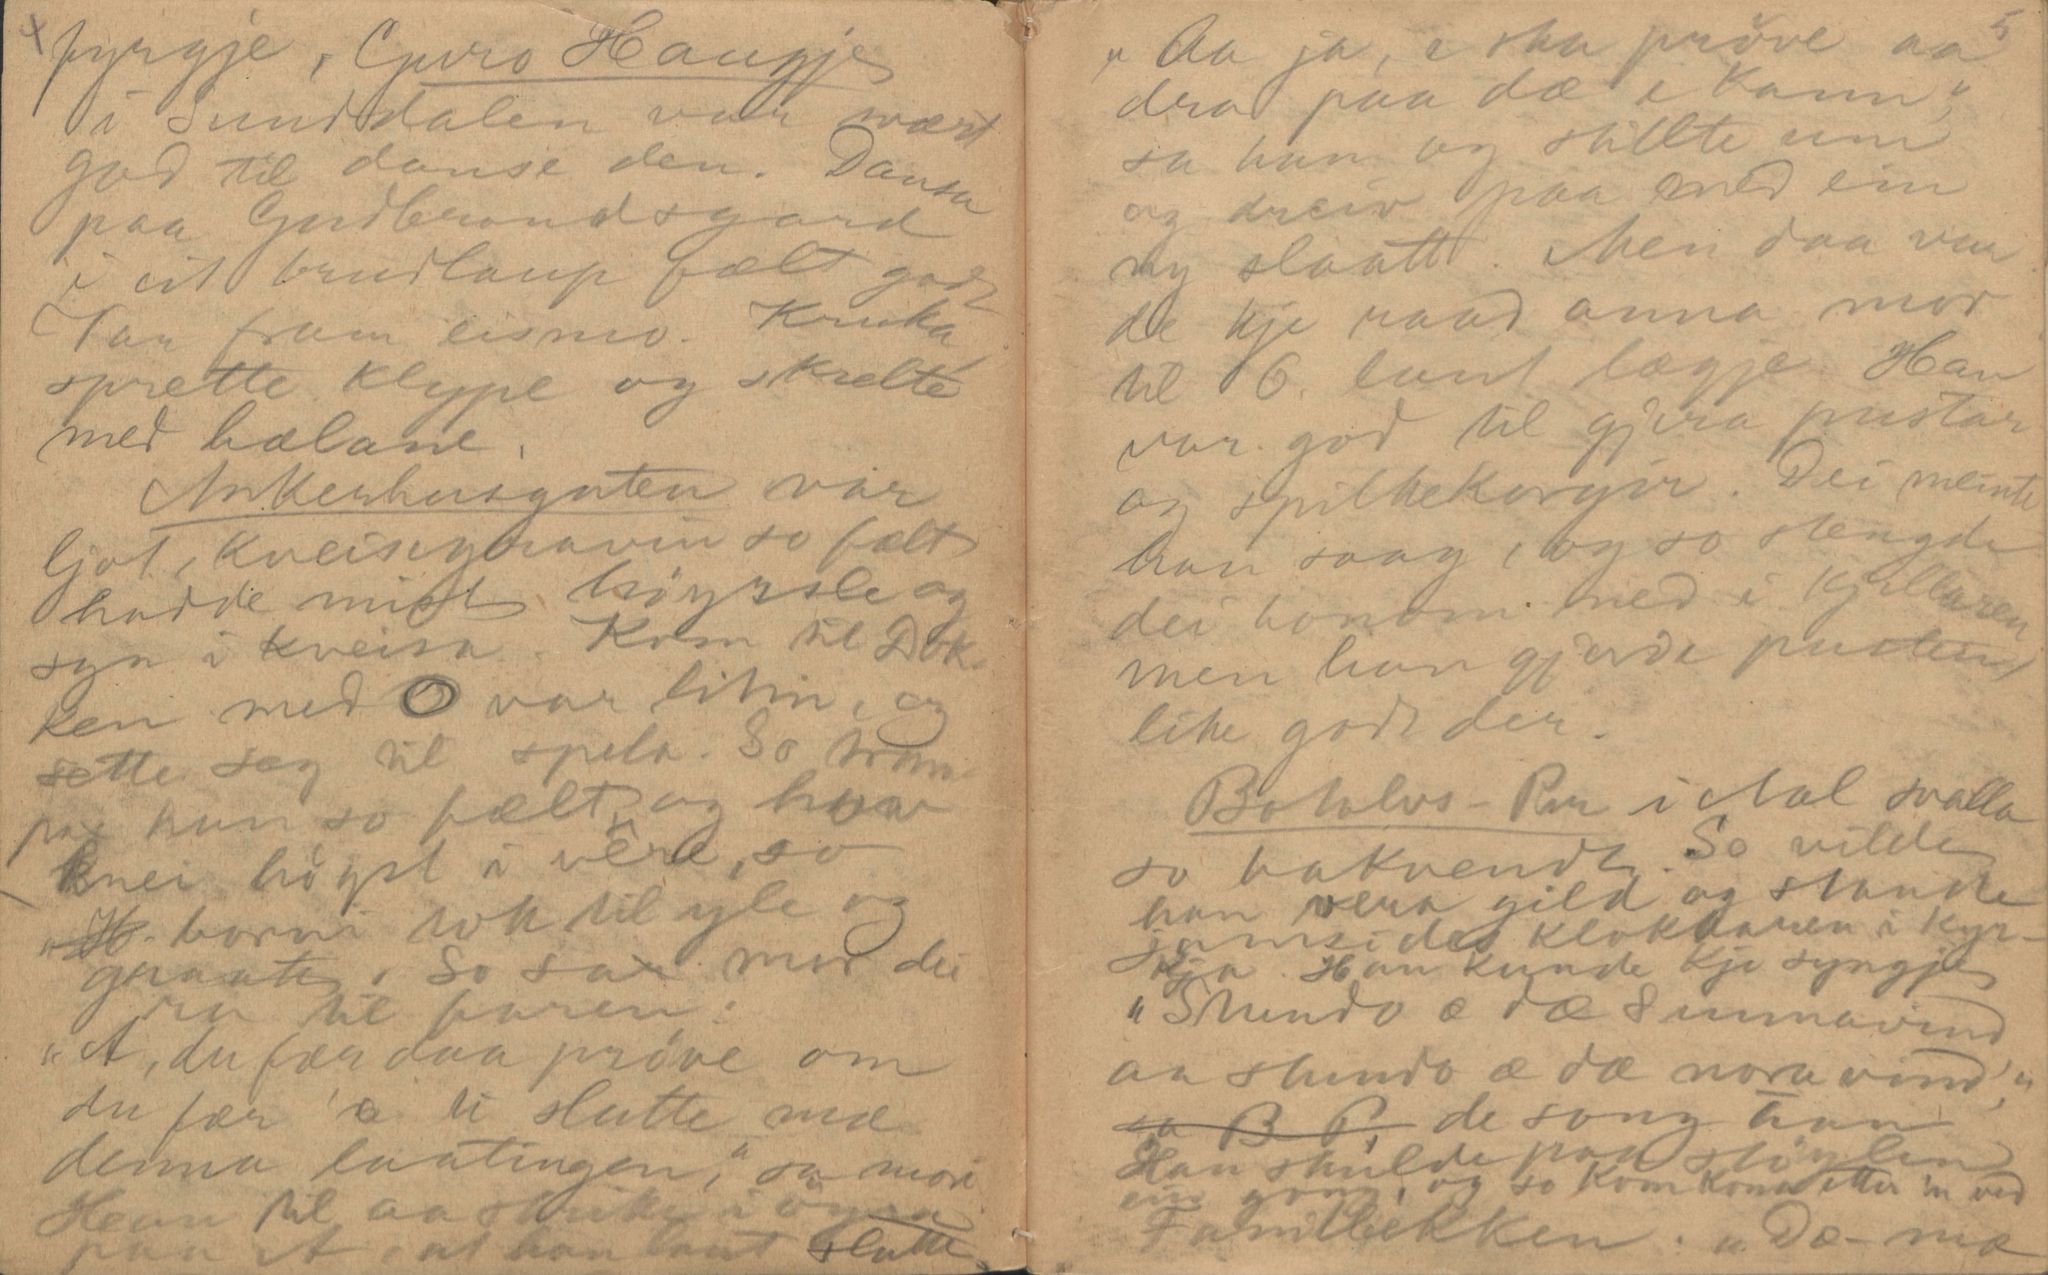 fyrgje, Guro Haugje
i Sunddalen var svært
god til danse den. Dansa
paa Gudbrandsgard
i eit brudlaup fælt godt
Tau fram eismo. Kruka,
sprette klype og skrelte
med hælane.
Ankerhusguten var
ljot, kveisegraven so fælt
hadde mist höyrsle og
syn i kveisa. Kom til Dok-
ken med O var liten, og
sette seg til spela. So tram-
pa han so fælt, og hav
knei högst i vêre, so
borni tok til yle og
graate. So sa mor dei
ra til faren:
"A, du fær daa pröve om
du fær 'a ti slutte mæ
denna laatingen," sa mori
Han til aa skrike i öyra
paa A, at han laut slutte
5
"Aa ja, e ska pröve aa
dra paa dæ e kann,"
sa han og stillte um
og dreiv paa med ein
ny slaatt. Men daa var
de kje raad anna mor
til O. laut lægje. Han
var god til gjera pustar
og spilkekorgir. Dei meinte
han saag, og so stengde
dei honom ned i kjellaren
men han gjorde pusten
like godt der.
Bokolvs-Per i Aal svalla
so bakvendt. So vilde
han vera gild og stande
jamsides klokkaren i kyr-
kja. Han kunde kje syngje
"Stundo æ dæ sunnavind
aa stundo æ dæ noravind,"
sa B P, de song han
Han skulde paa stöylen
ein gong, og so kom kona etter 'n ved
Famillbekken. "Dæ mæ